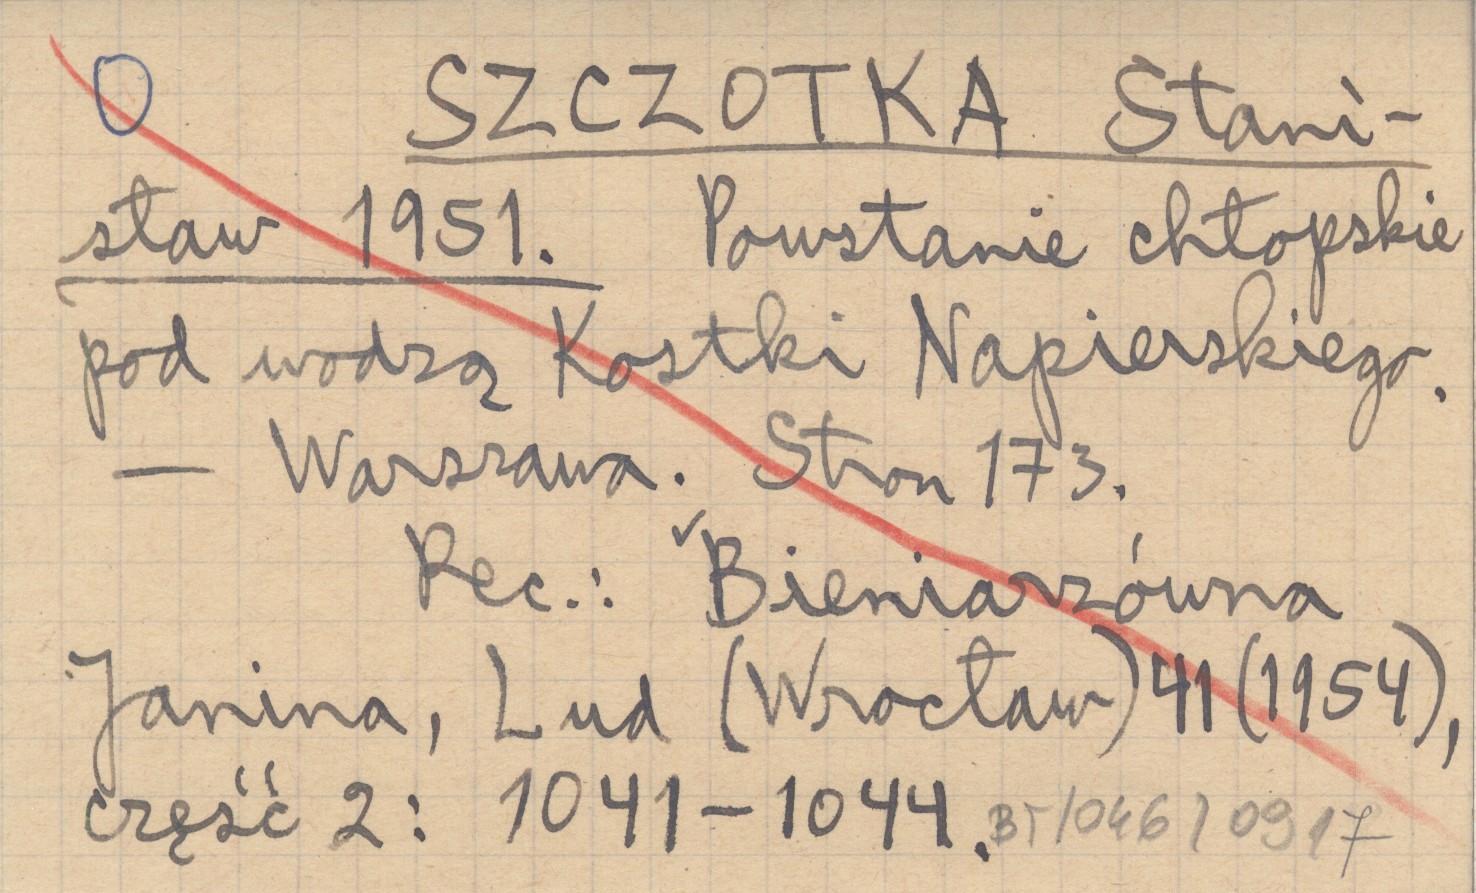 O SZCZOTKA Stani-
sław 1951. Powstanie chłopskie
pod wodzą Kostki Napierskiego.
— Warszawa. Stron 173.
Rec.: ✓Bieniarzówna
Janina, Lud (Wrocław) 41 (1954),
część 2: 1041-1044. BT/046/0917